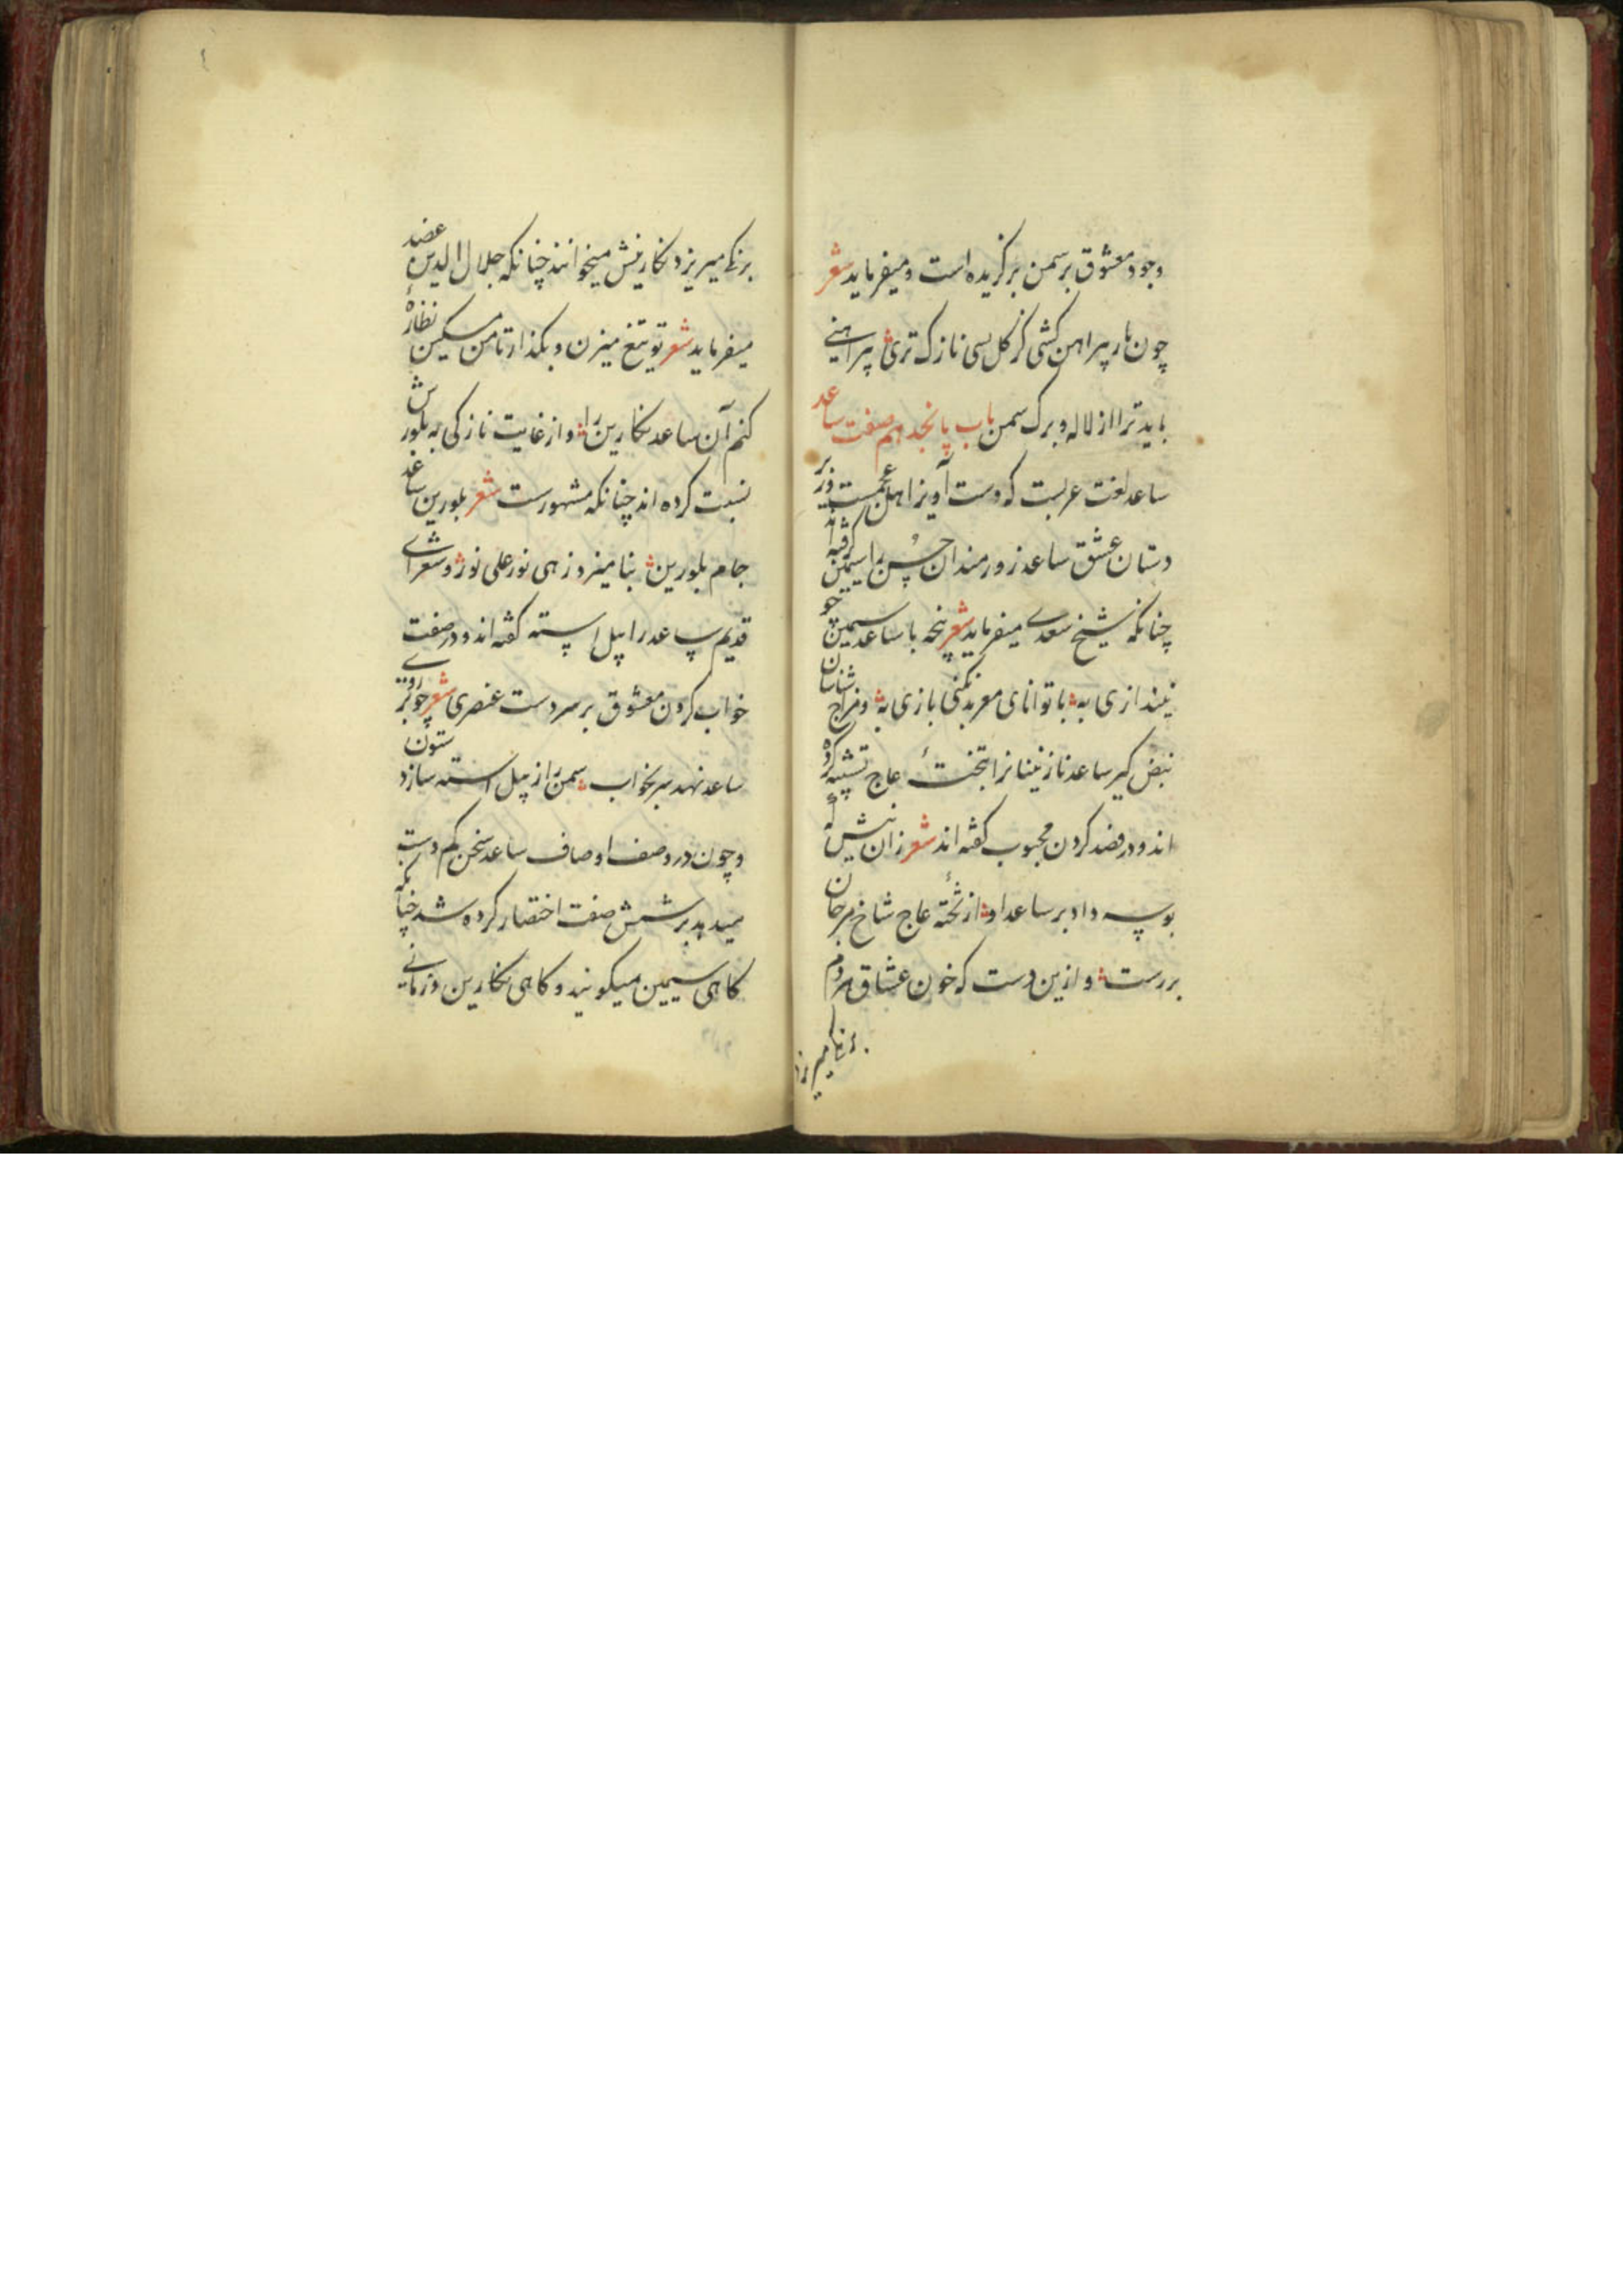 وجود معشوق بر سمن برگزیده است و میفرماید شعر
چون بار پیراهن کشی کز گل بسی نازک تری پیراهنی
باید ترا از لاله و برک سمن باب پانجدهم صفت ساعد
ساعد لغت عربست که دست آویز اهل عجمست و زبر
دستان عشق ساعد زورمندان حسن را سیمین گرفته اند
چنانکه شیخ سعدی میفرماید شعر پنجه با ساعد سیمین چو
نیندازی به با توانای معربد نکنی بازی به و مزاج شناسان
نبض گیر ساعد نازنینانرا بتختهٔ عاج تشبیه کرده
اند و در فصد کردن محبوب گفته اند شعر زان نیش که
بوسه داد بر ساعد او از تختهٔ عاج شاخ مرجان
بررست و ازین دست که خون عشاق هر دم
برنگ میریزد
برنگ میریزد نگارینش میخوانند چنانکه جلال الدین عضد
میفرماید شعر تو تیغ میزن و بگذار تا من مسکین نظارهٔ
کنم آن ساعد نگارین را و از غایت نازکی به بلورش
نسبت کرده اند چنانکه مشهورست شعر بلورین ساعد
جام بلورین بنامیزد زهی نور علی نور و شعرای
قدیم ساعد را پیل استه گفته اند و در صفت
خواب کردن معشوق بر سر دست عنصری شعر چو بر روی
ساعد نهد سر بخواب سمن را ز پیل استه سازد ستون
و چون در وصف اوصاف ساعد سخن کم دست
میدهد بر شش صفت اختصار کرده شد چنانکه
گاهی سیمین میگویند و گاهی نگارین و زمانی